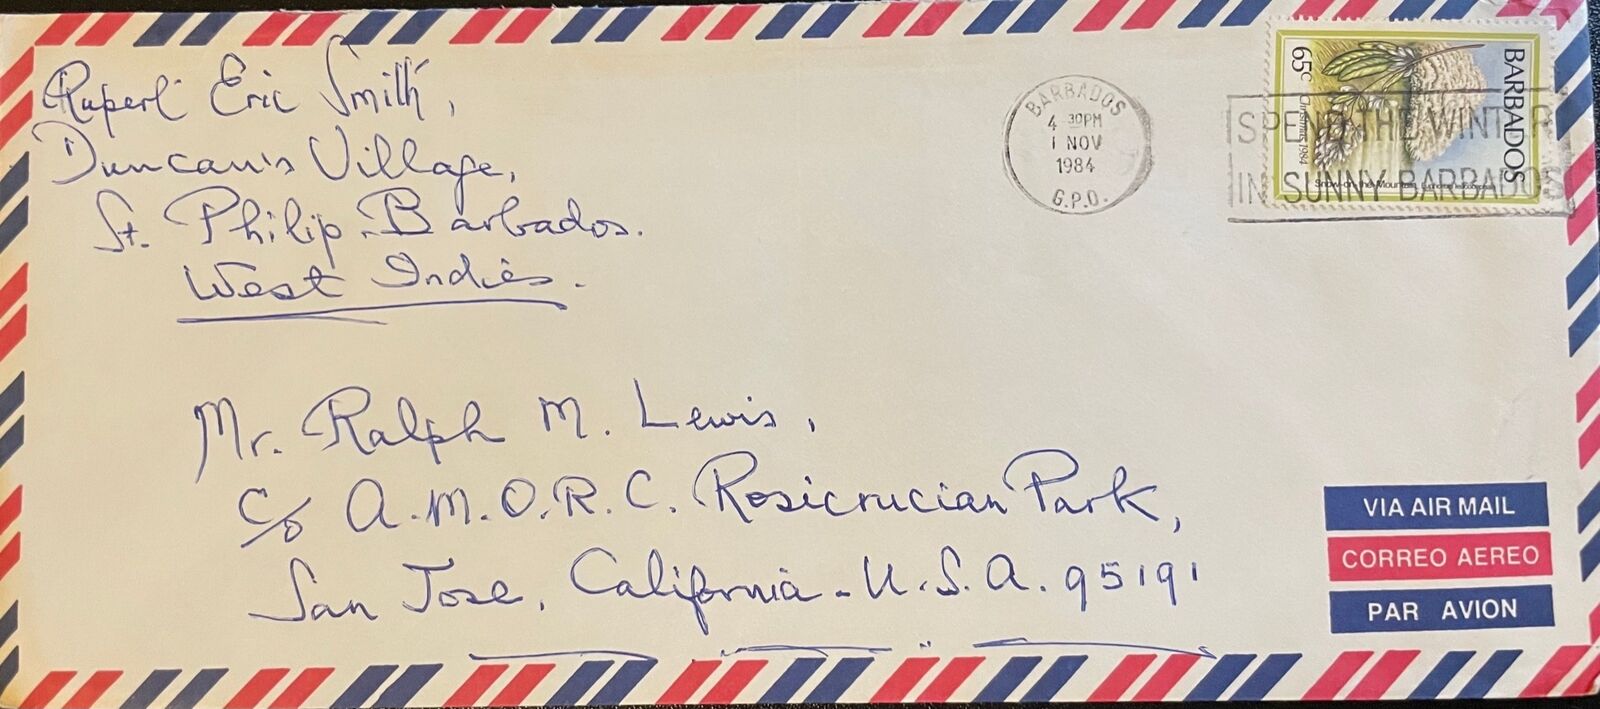 Rupert Eric Smith,
Duncan's Village,
St. Philip. Barbados.
West Indies.
BARBADOS
4 30PM
1 NOV
1984
G.P.O.
SPEND THE WINTER
IN SUNNY BARBADOS
BARBADOS
65c
Christmas 1984
Snow-on-the-Mountain
Mr. Ralph M. Lewis,
c/o A.M.O.R.C. Rosicrucian Park,
San Jose, California - U.S.A. 95191
VIA AIR MAIL
CORREO AEREO
PAR AVION